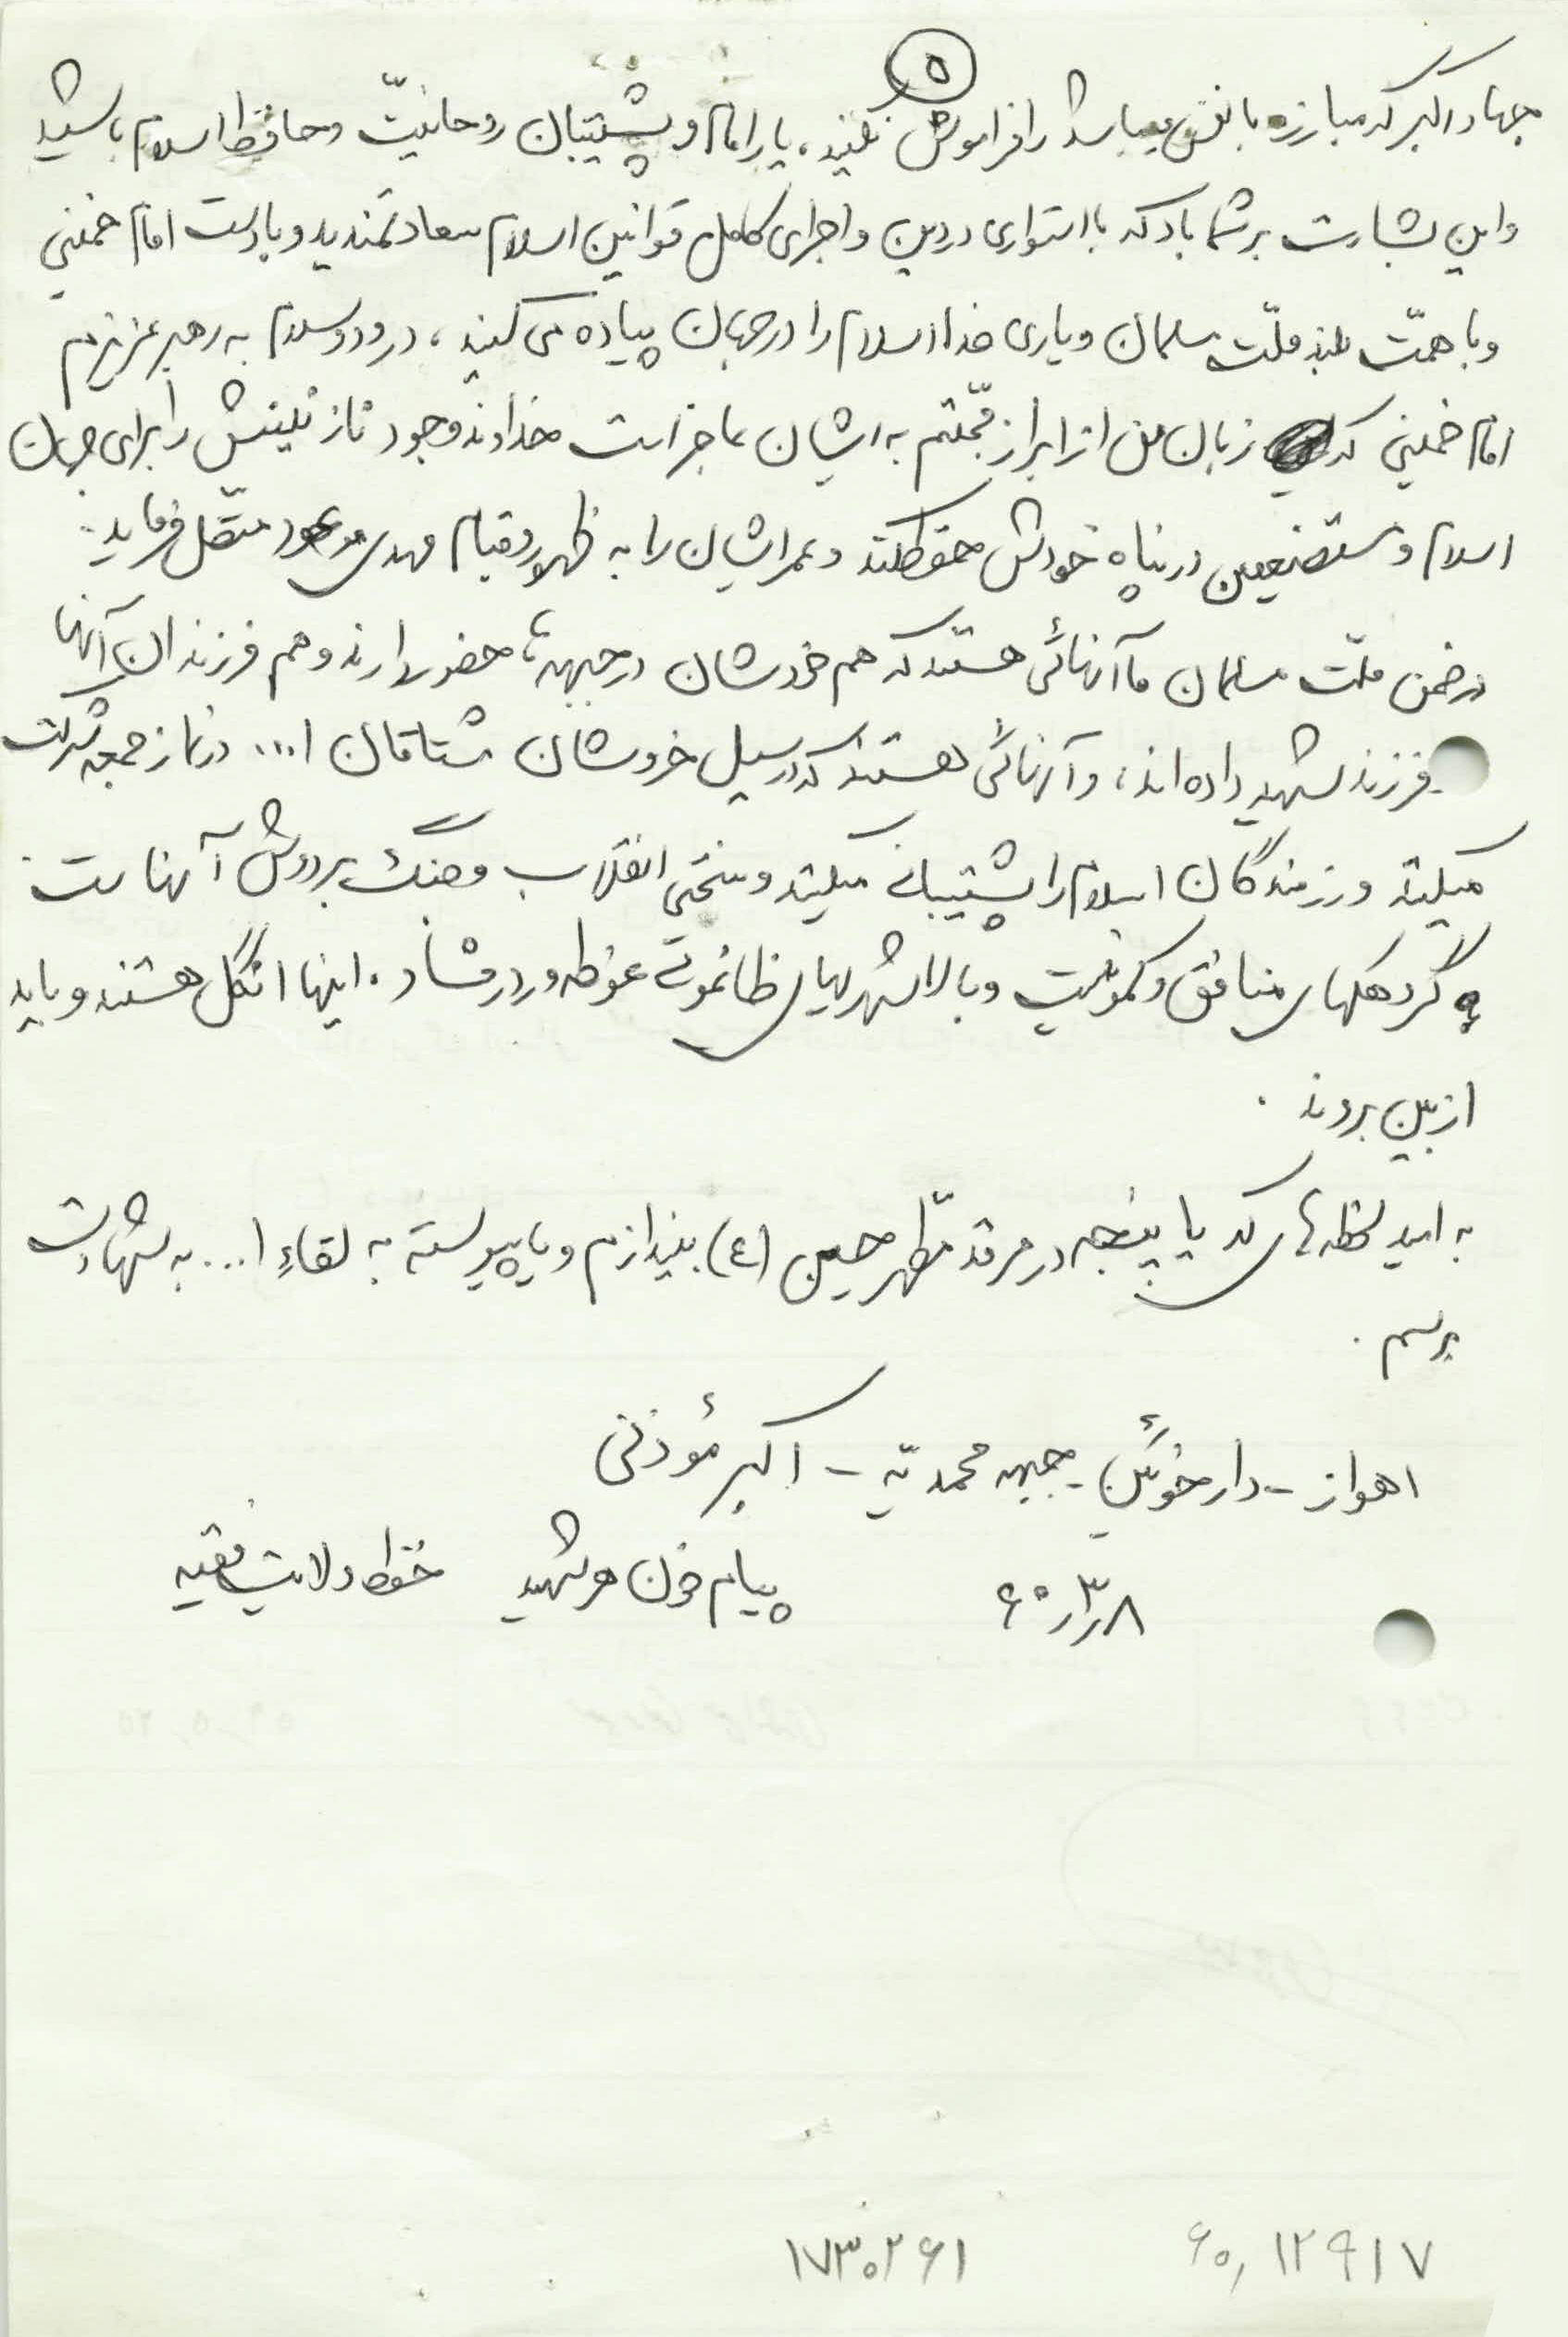 ۵
جهاد اکبر که مبارزه با نفس میباشد را فراموش نکنید، یار امام و پشتیبان روحانیّت و حافظ اسلام باشید
و این بشارت بر شما باد که با استواری در دین و اجرای کامل قوانین اسلام سعادتمندید و با دست امام خمینی
و با همّت بلند ملّت مسلمان و یاری خدا اسلام را در جهان پیاده می کنید، درود و سلام به رهبر عزیزم
امام خمینی که زبان من از ابراز محبّتم به ایشان عاجز است خداوند وجود نازنینش را برای جهان
اسلام و مستضعیفین در پناه خودش حفظ کند و عمر ایشان را به ظهور و قیام مهدی موعود متصّل فرماید.
در ضمن ملّت مسلمان ما آنهائی هستند که هم خودشان در جبهه ها حضور دارند و هم فرزندان آنها
فرزند شهید داده اند، و آنهائی هستند که در سیل خروشان مشتاقان ا... در نماز جمعه شرکت
میکنند و رزمندگان اسلام را پشتیبانی میکنند و سختی انقلاب و جنگ بر دوش آنهاست.
گروهکهای منافق و کمونیست و بالاشهریهای طاغوتی غوطه ور در فساد. اینها انگل هستند و باید
از بین بروند.
به امید لحظه های که یا پنجه در مرقد مطّهر حسین (ع) بیندازم و یا پیوسته به لقاءِ ا... به شهادت
برسم.
اهواز - دارخوئین - جبهه محمدیّه - اکبر مؤذنی
۶۰/۳/۸ پیام خون هر شهید حفظ ولایت فقیه
۶۰,۱۲۹۱۷ ۱۷۳۰۲۶۱